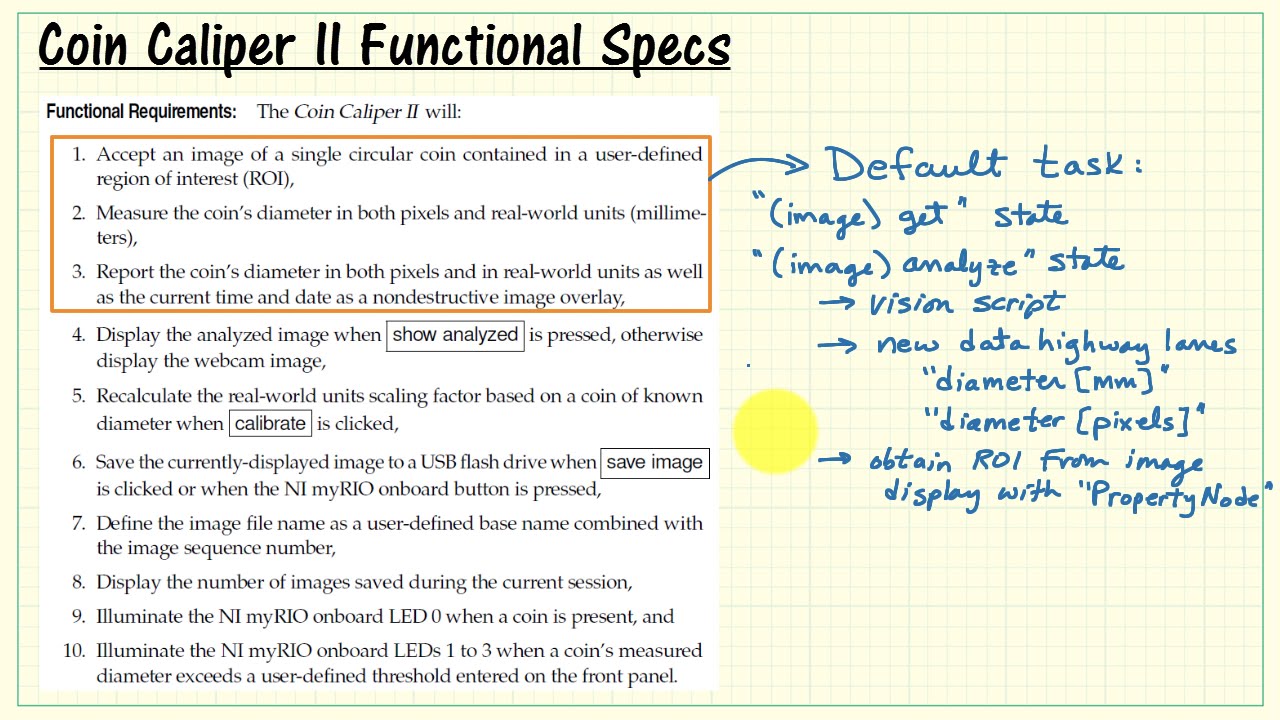 Coin Caliper II Functional Specs
Functional Requirements: The Coin Caliper II will:
1. Accept an image of a single circular coin contained in a user-defined
region of interest (ROI),
2. Measure the coin's diameter in both pixels and real-world units (millime-
ters),
3. Report the coin's diameter in both pixels and in real-world units as well
as the current time and date as a nondestructive image overlay,
4. Display the analyzed image when show analyzed is pressed, otherwise
display the webcam image,
5. Recalculate the real-world units scaling factor based on a coin of known
diameter when calibrate is clicked,
6. Save the currently-displayed image to a USB flash drive when save image
is clicked or when the NI myRIO onboard button is pressed,
7. Define the image file name as a user-defined base name combined with
the image sequence number,
8. Display the number of images saved during the current session,
9. Illuminate the NI myRIO onboard LED 0 when a coin is present, and
10. Illuminate the NI myRIO onboard LEDs 1 to 3 when a coin's measured
diameter exceeds a user-defined threshold entered on the front panel.
→ Default task:
"(image) get" state
"(image) analyze" state
→ vision script
→ new data highway lanes
"diameter [mm]"
"diameter [pixels]"
→ obtain ROI from image
display with "PropertyNode"